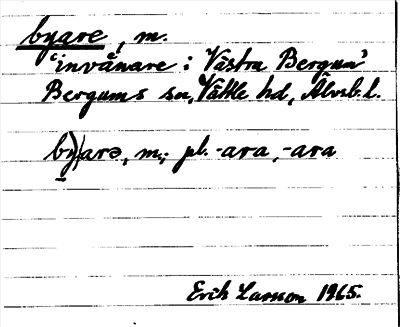 byare, m.
'invånare i Västra Bergum'
Bergums sn, Vättle hd, Älvsb. l.
by)arə, m.; pl. -ara, -ara
Erik Larsson 1965.